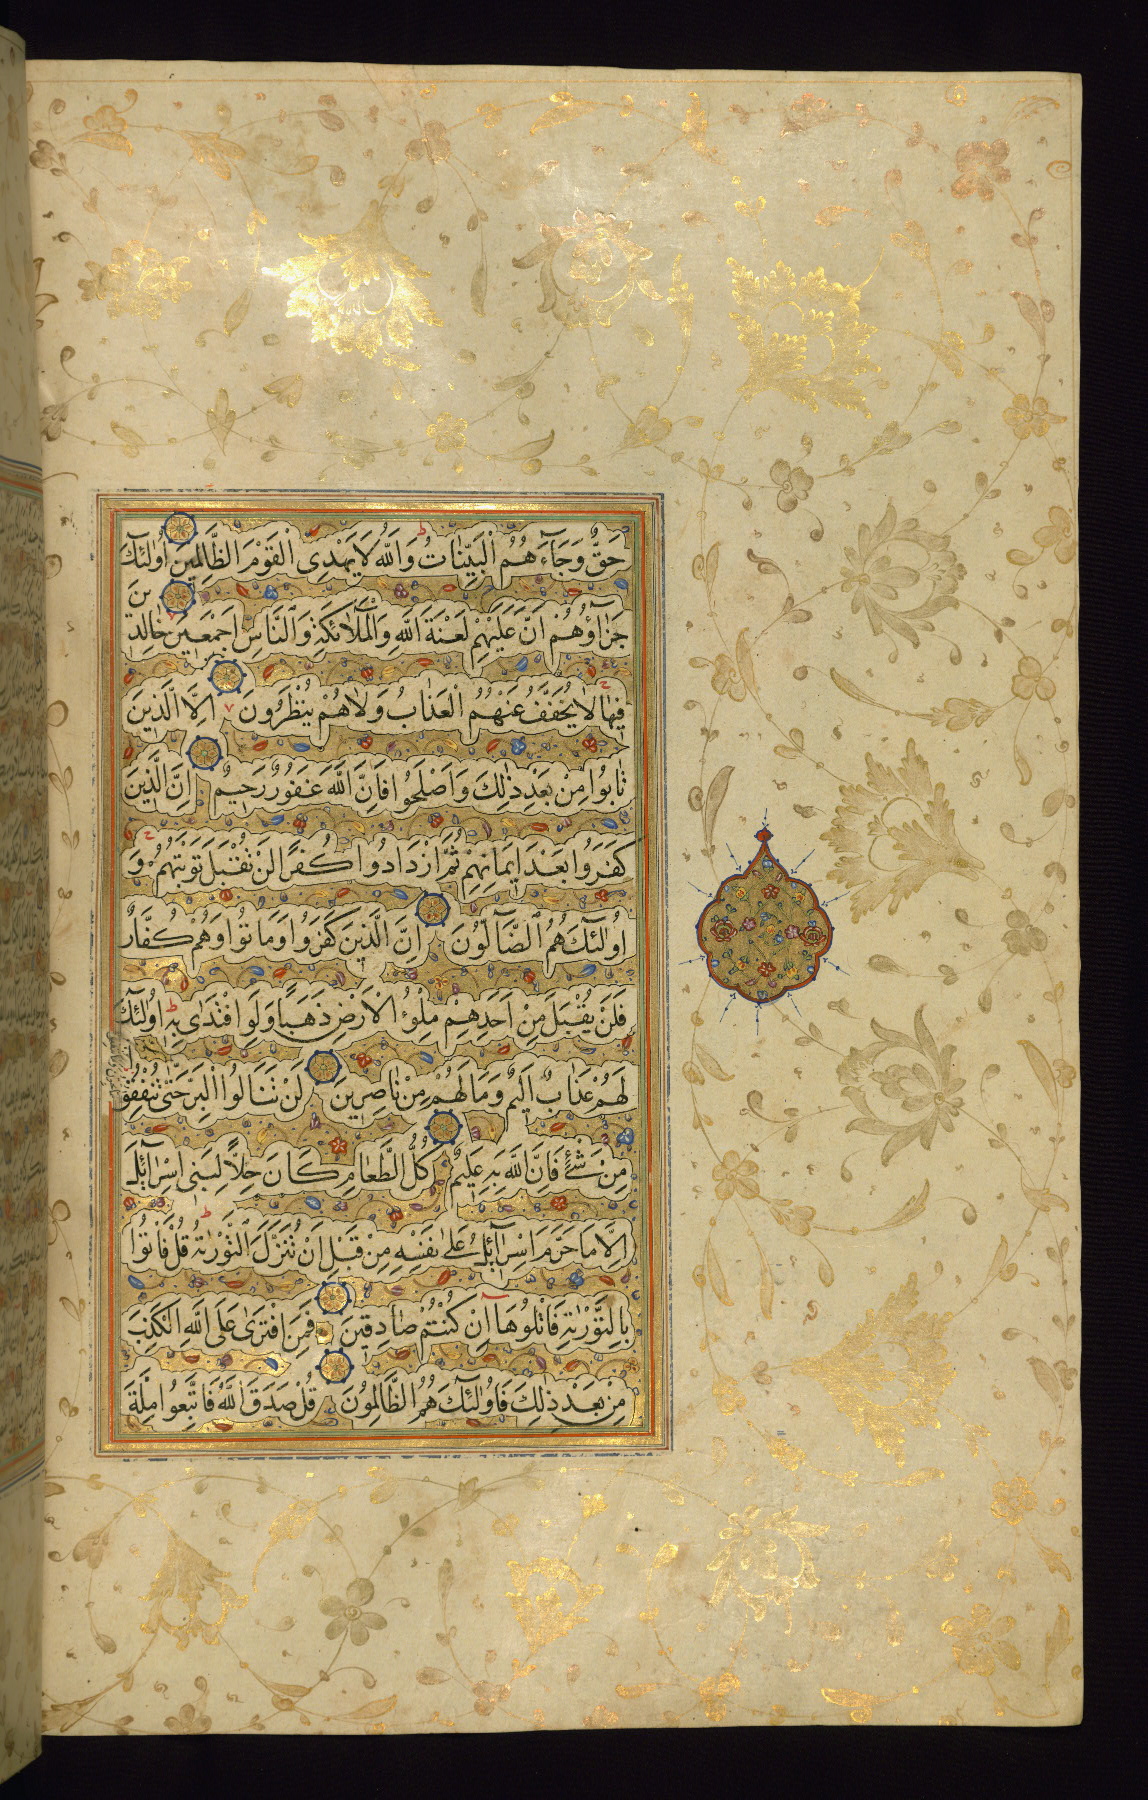 حَقٌّ وَجَآءَ هُمُ الْبَيِّنَاتُ وَاللّٰهُ لَا يَهْدِى الْقَوْمَ الظَّالِمِينَ اُولٰئِكَ
جَزَآؤُهُمْ اَنَّ عَلَيْهِمْ لَعْنَةَ اللّٰهِ وَالْمَلَآئِكَةِ وَالنَّاسِ اَجْمَعِينَ خَالِدِينَ
فِيهَا لَا يُخَفَّفُ عَنْهُمُ الْعَذَابُ وَلَاهُمْ يُنْظَرُونَ اِلَّا الَّذِينَ
تَابُوا مِنْ بَعْدِ ذٰلِكَ وَاَصْلَحُوا فَاِنَّ اللّٰهَ غَفُورٌ رَحِيمٌ اِنَّ الَّذِينَ
كَفَرُوا بَعْدَ اِيمَانِهِمْ ثُمَّ ازْدَادُوا كُفْرًا لَنْ تُقْبَلَ تَوْبَتُهُمْ وَ
اُولٰئِكَ هُمُ الضَّآلُّونَ اِنَّ الَّذِينَ كَفَرُوا وَمَاتُوا وَهُمْ كُفَّارٌ
فَلَنْ يُقْبَلَ مِنْ اَحَدِهِمْ مِلْءُ الْاَرْضِ ذَهَبًا وَلَوِ افْتَدٰى بِهِ اُولٰئِكَ
لَهُمْ عَذَابٌ اَلِيمٌ وَمَا لَهُمْ مِنْ نَاصِرِينَ لَنْ تَنَالُوا الْبِرَّ حَتّٰى تُنْفِقُوا
مِنْ شَىْءٍ فَاِنَّ اللّٰهَ بِهِ عَلِيمٌ كُلُّ الطَّعَامِ كَانَ حِلًّا لِبَنِى اِسْرَآئِلَ
اِلَّا مَا حَرَّمَ اِسْرَآئِلُ عَلٰى نَفْسِهِ مِنْ قَبْلِ اَنْ تُنَزَّلَ التَّوْرٰيةُ قُلْ فَاْتُوا
بِالتَّوْرٰيةِ فَاتْلُوهَا اِنْ كُنْتُمْ صَادِقِينَ فَمَنِ افْتَرٰى عَلَى اللّٰهِ الْكَذِبَ
مِنْ بَعْدِ ذٰلِكَ فَاُولٰئِكَ هُمُ الظَّالِمُونَ قُلْ صَدَقَ اللّٰهُ فَاتَّبِعُوا مِلَّةَ